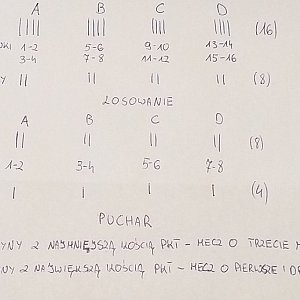 A B C D
|||| |||| |||| |||| (16)
1-2 5-6 9-10 13-14
3-4 7-8 11-12 15-16
|| || || || (8)
LOSOWANIE
A B C D
|| || || || (8)
1-2 3-4 5-6 7-8
| | | | (4)
PUCHAR
YNY Z NAJMNIEJSZĄ ILOŚCIĄ PKT - MECZ O TRZECIE M
YNY Z NAJWIĘKSZĄ ILOŚCIĄ PKT - MECZ O PIERWSZE I DR